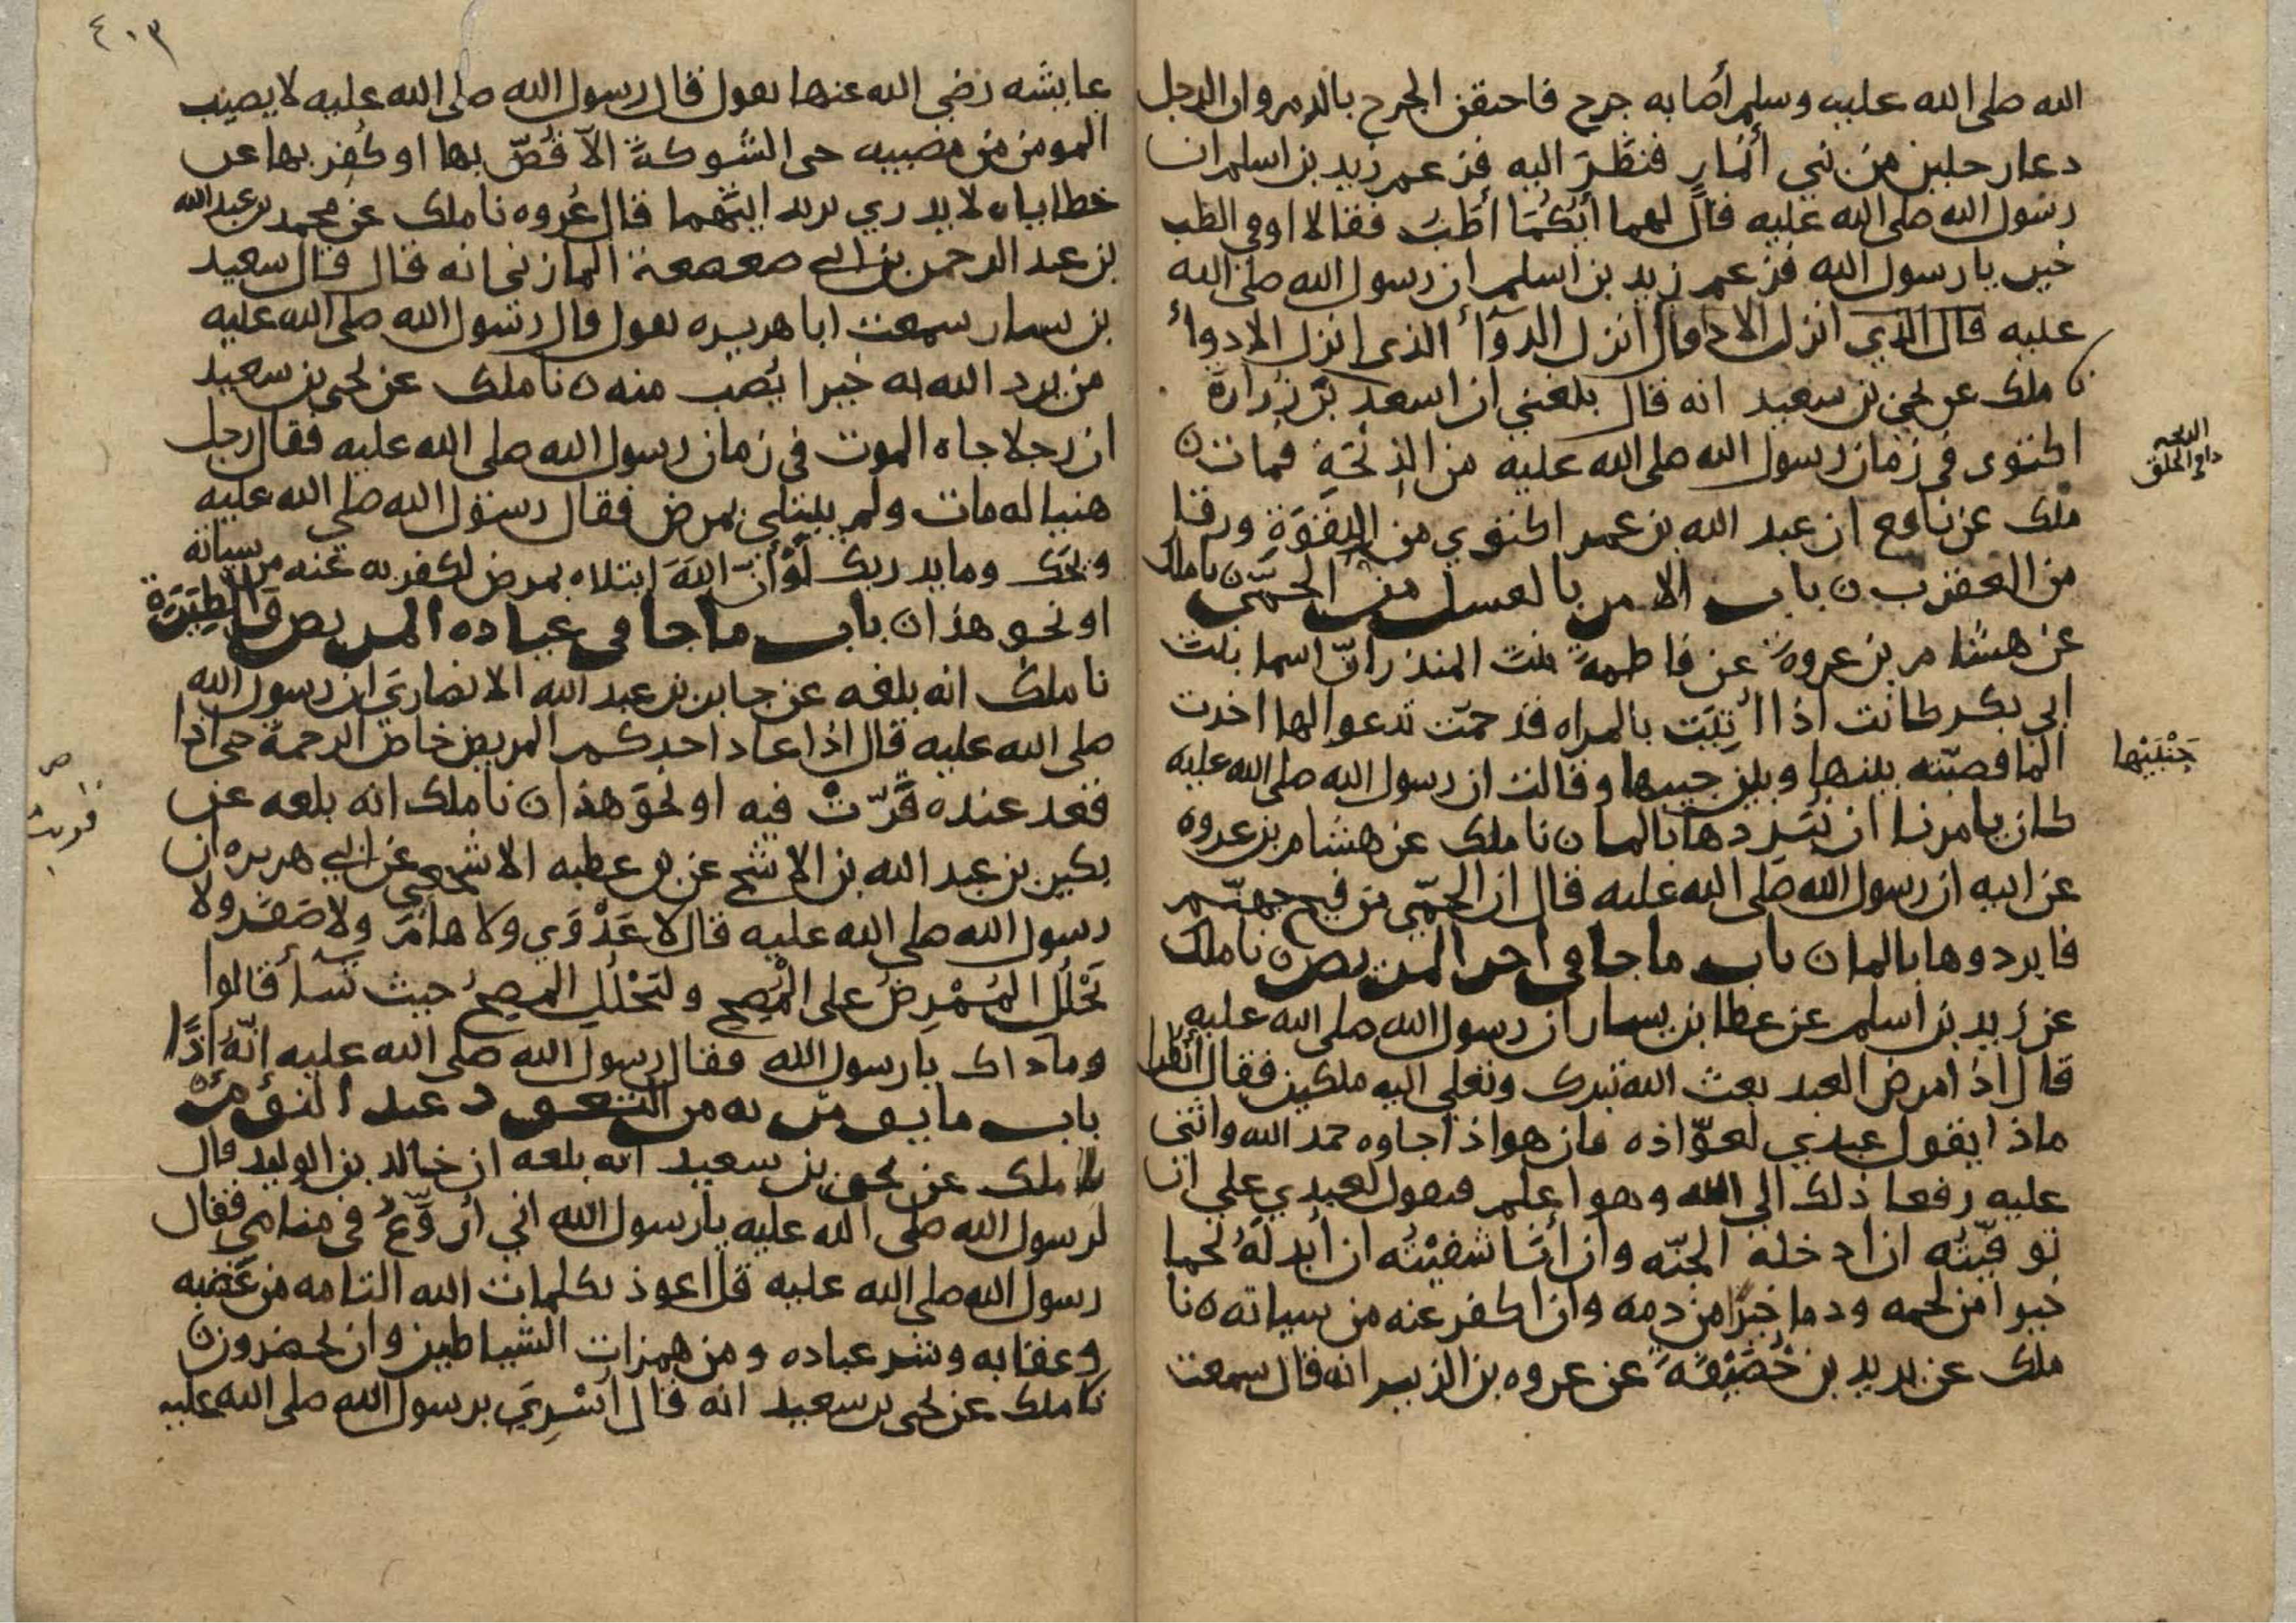 الله صلى الله عليه وسلم أصابه جرح فاحتقن الجرح بالدم وان الرجل
دعا رجلين من بني أنمار فنظرا اليه فزعم زيد بن اسلم ان
رسول الله صلى الله عليه قال لهما أيّكما أطبّ فقالا اوفي الطب
خير يا رسول الله فزعم زيد بن اسلم ان رسول الله صلى الله
عليه قال انزل الدوآء الذي انزل الادواء
نا ملك عن يحيى بن سعيد انه قال بلغني ان اسعد بن زرارة
اكتوى في زمان رسول الله صلى الله عليه من الذبحة فمات ن
ملك عن نافع ان عبد الله بن عمر اكتوي من اللقوة ورقا
الذبحه
دا في الحلق
من العقرب ن باب الامر بالغسل من الحمّى ن نا ملك
عن هشام بن عروة عن فاطمة بنت المنذر انّ اسما بنت
ابي بكر كانت اذا أتيت بالمراه قد حمّت تدعوا لها اخذت
الما فصبّته بينها وبين جيبها وقالت ان رسول الله صلى الله عليه
جَنْبَيْها
كان يامرنا ان نبردها بالما ن نا ملك عن هشام بن عروه
عن ابيه ان رسول الله صلى الله عليه قال ان الحمّى من فيح جهنّم
فابردوها بالما ن باب ما جا في اجر المريض ن نا ملك
عن زيد بن اسلم عن عطا بن يسار ان رسول الله صلى الله عليه
قال اذا مرض العبد بعث الله تبرك وتعلى اليه ملكين فقال انظرا
ماذا يقول عبدي لعوّاذه فان هو اذا جاوه حمد الله واثنى
عليه رفعا ذلك الى الله وهو اعلم فيقول لعبدي علي ان
توفيّته ان ادخله الجنّه وان أنا شفيته ان أبدله لحما
خيرا من لحمه ودما خيرًا من دمه وان اكفر عنه من سياته ن نا
ملك عن يزيد بن خُصَيْفَةَ عن عروه بن الزبير انه قال سمعت
٤٠٣
عايشه رضي الله عنها تقول قال رسول الله صلى الله عليه لا يصيب
المومن من مصيبه حتى الشوكة الّا قُصّ بها او كُفر بها عن
خطاياه لا يدري يزيد ايّهما قال عُروه نا ملك عن محمد بن عبد الله
بن عبد الرحمن بن ابي صعصعة المازني انه قال قال سعيد
بن يسار سمعت ابا هريره يقول قال رسول الله صلى الله عليه
من يرد الله به خيرا يُصب منه ن نا ملك عن يحيى بن سعيد
ان رجلا جاه الموت في زمان رسول الله صلى الله عليه فقال رجل
هنيا له مات ولم يبتلى بمرض فقال رسول الله صلى الله عليه
ويحك وما يدريك لَوْ أنّ اللهَ ابتلاه بمرض لكفر به عنه من سياته
او نحو هذا ن باب ما جا في عياده المريض والطِيَرَة
نا ملك انه بلغه عن جابر بن عبد الله الانصاري ان رسول الله
صلى الله عليه قال اذا عاد احدكم المريض خاض الرحمة حتى اذا
قعد عنده قَرّتْ فيه او نحو هذا ن نا ملك انه بلغه عن
بكير بن عبد الله بن الاشج عن بن عطيه الاشجعي عن ابي هريره ان
رسول الله صلى الله عليه قال لا عَدْوَي ولا هامَ ولا صَفَر ولا
يَحْلُل المُمْرِضُ على المُصِحِّ وليَحْلُلِ المصحُ حيث شآء قالوا
وما ذاك يا رسول الله فقال رسول الله صلى الله عليه إنّهُ أذًا
باب ما يومر به من التعوذ عند النوم
نا ملك عن يحيى بن سعيد انه بلغه ان خالد بن الوليد قال
لرسول الله صلى الله عليه يا رسول الله اني أُرَوَّعُ في منامي فقال
رسول الله صلى الله عليه قل اعوذ بكلمات الله التامه من غضبه
وعقابه وشر عباده ومن همزات الشياطين وان يحضرون ن
نا ملك عن يحيى بن سعيد انه قال أسْرِيَ برسول الله صلى الله عليه